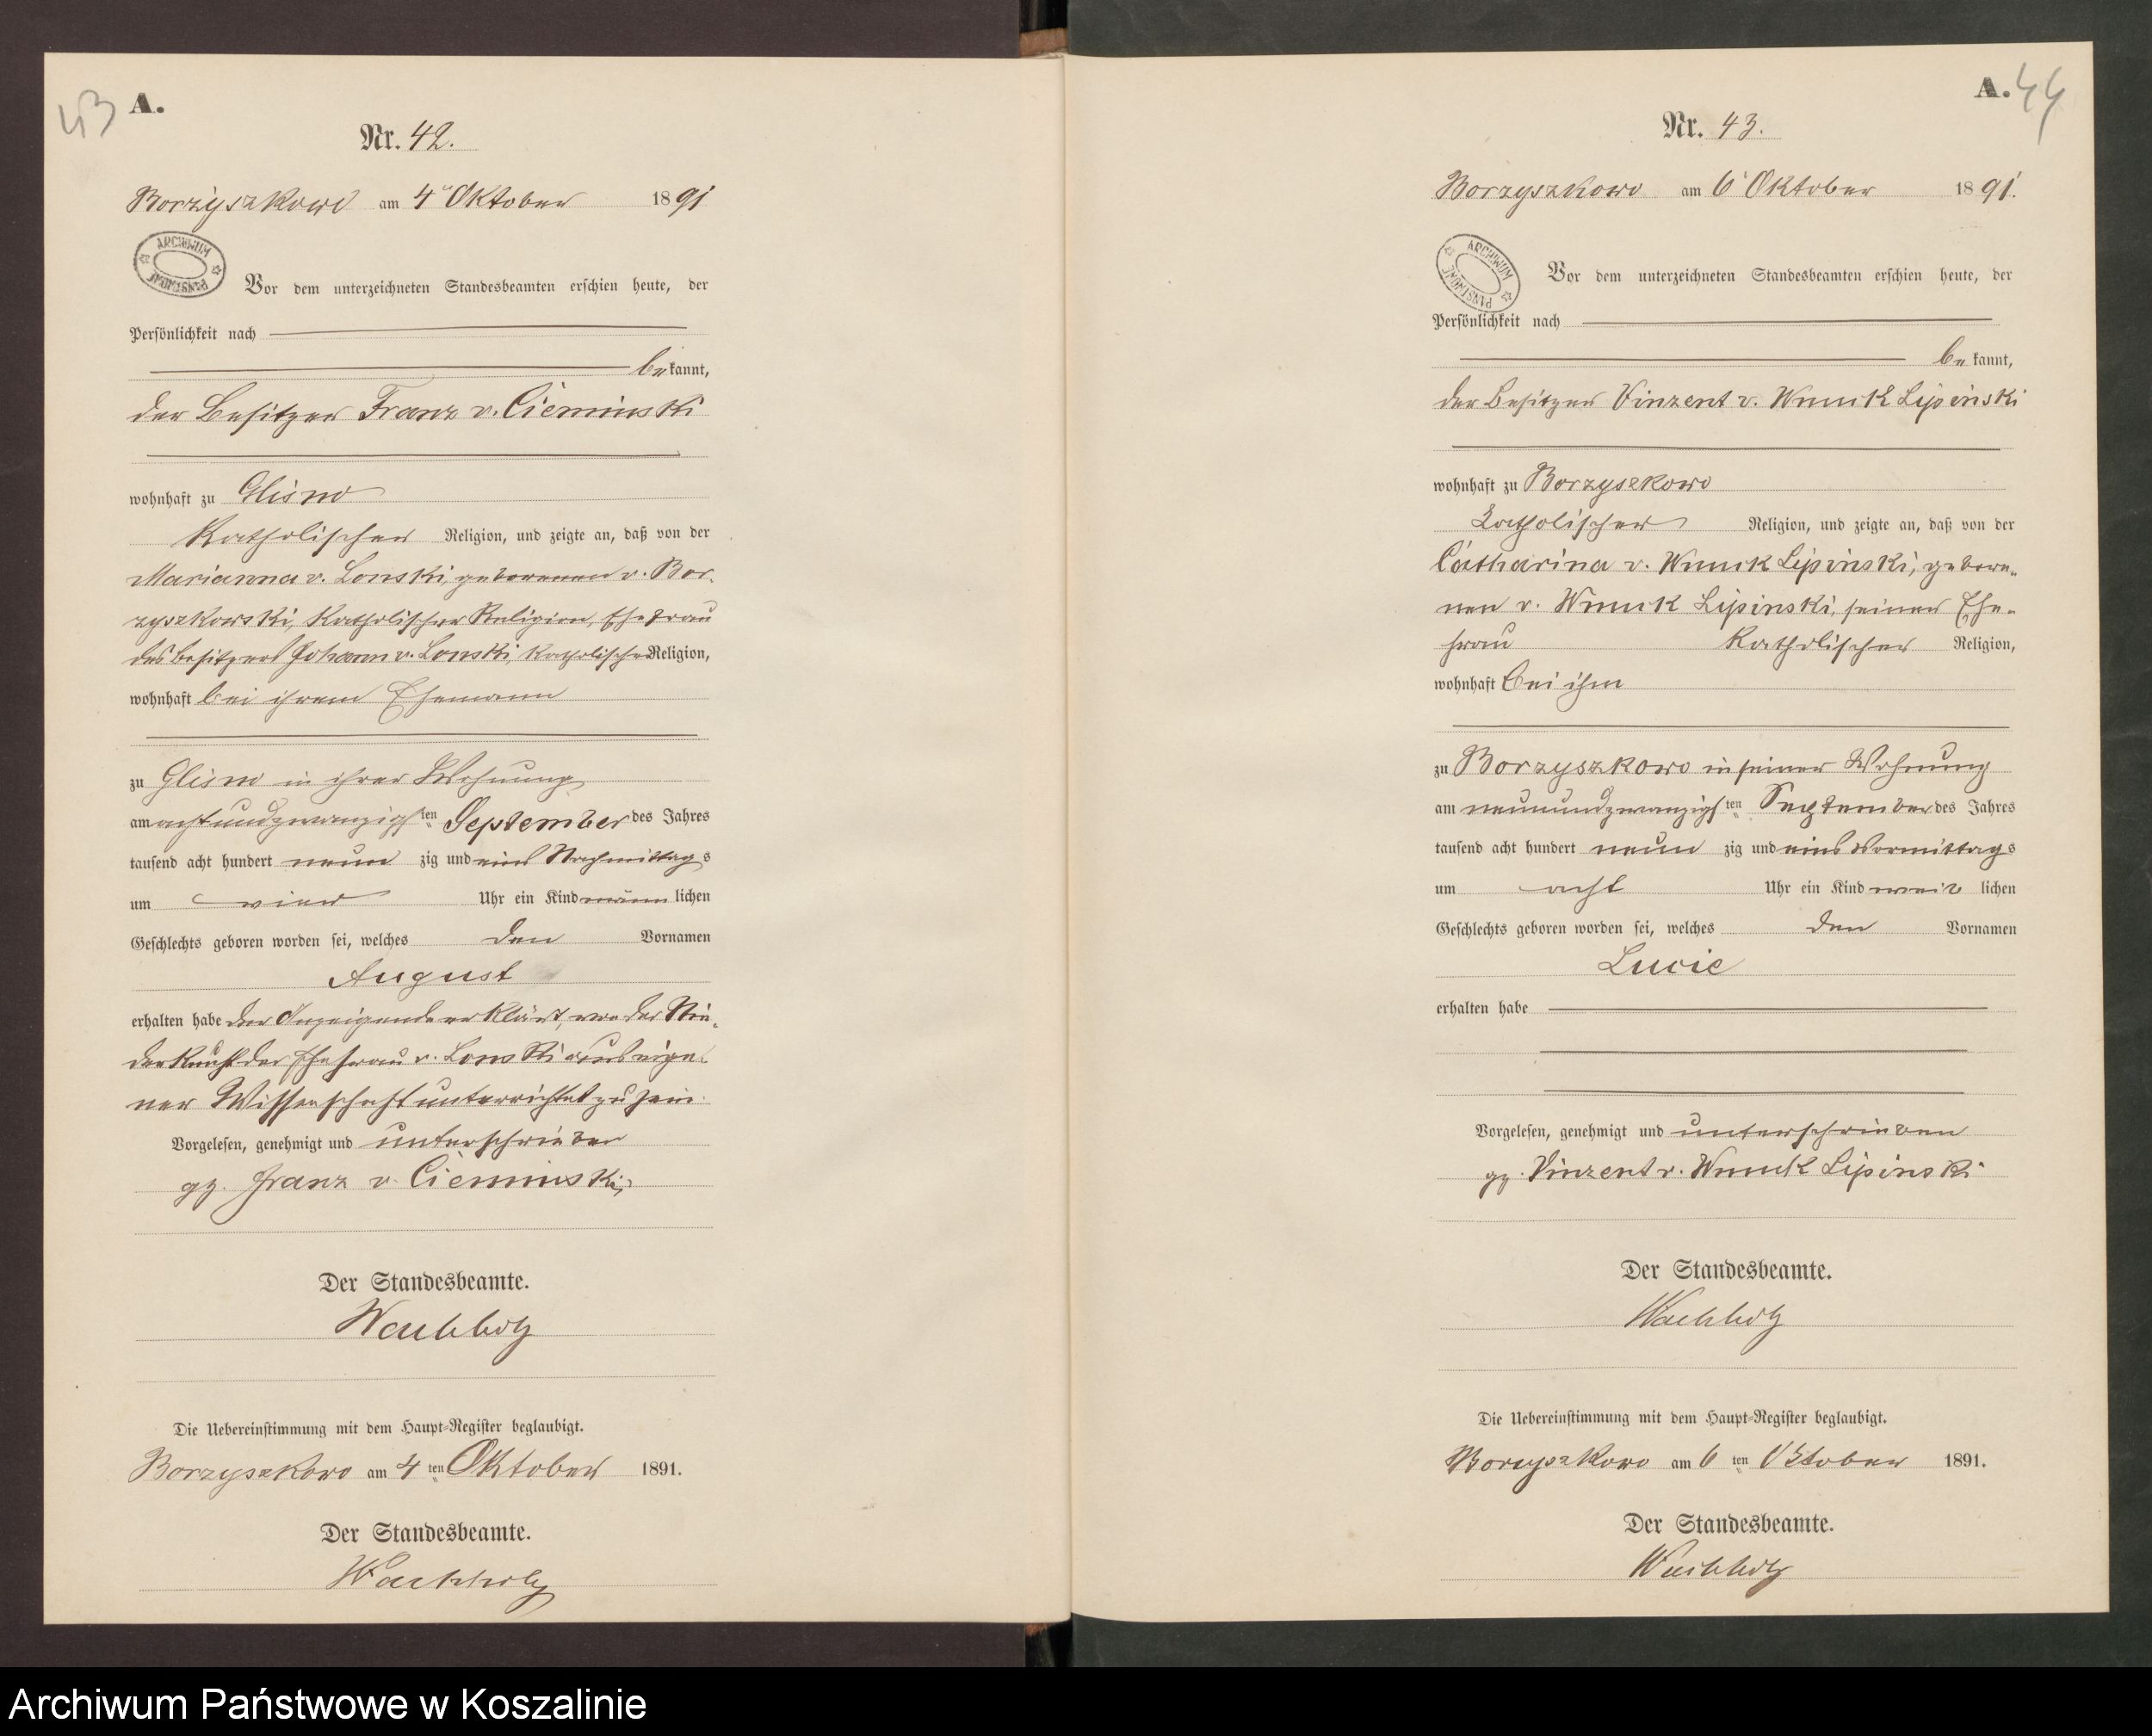 43 A.
Nr. 42.
Borzyszkowo am 4 Oktober 1891
ARCHIWUM PAŃSTWOWE
Vor dem unterzeichneten Standesbeamten erschien heute, der
Persönlichkeit nach
bekannt,
der Besitzer Franz v. Cieminski
wohnhaft zu Glisno
Katholischer Religion, und zeigte an, daß von der
Marianna v. Lonski, geborenen v. Bor-
zyszkowski, Katholischer Religion, Ehefrau
des Besitzers Johann v. Lonski, Katholischer Religion,
wohnhaft bei ihrem Ehemann
zu Glisno in ihrer Wohnung
am achtundzwanzigsten September des Jahres
tausend acht hundert neunzig und eins Nachmittags
um vier Uhr ein Kind männlichen
Geschlechts geboren worden sei, welches den Vornamen
August
erhalten habe der Anzeigende erklärt, von der Nie-
derkunft der Ehefrau v. Lonski aus eige-
ner Wissenschaft unterrichtet zu sein.
Vorgelesen, genehmigt und unterschrieben
gz. Franz v. Cieminski
Der Standesbeamte.
Wachholz
Die Uebereinstimmung mit dem Haupt-Register beglaubigt.
Borzyszkowo am 4ten Oktober 1891.
Der Standesbeamte.
Wachholz
A. 44
Nr. 43.
Borzyszkowo am 6 Oktober 1891.
ARCHIWUM PAŃSTWOWE
Vor dem unterzeichneten Standesbeamten erschien heute, der
Persönlichkeit nach
bekannt,
der Besitzer Vinzent v. Wnuck Lipinski
wohnhaft zu Borzyszkowo
Katholischer Religion, und zeigte an, daß von der
Catharina v. Wnuck Lipinski, gebore-
nen v. Wnuck Lipinski, seiner Ehe-
frau Katholischer Religion,
wohnhaft bei ihm
zu Borzyszkowo in seiner Wohnung
am neunundzwanzigsten September des Jahres
tausend acht hundert neunzig und eins Vormittags
um acht Uhr ein Kind weiblichen
Geschlechts geboren worden sei, welches den Vornamen
Lucie
erhalten habe
Vorgelesen, genehmigt und unterschrieben
gz. Vinzent v. Wnuck Lipinski
Der Standesbeamte.
Wachholz
Die Uebereinstimmung mit dem Haupt-Register beglaubigt.
Borzyszkowo am 6ten Oktober 1891.
Der Standesbeamte.
Wachholz
Archiwum Państwowe w Koszalinie